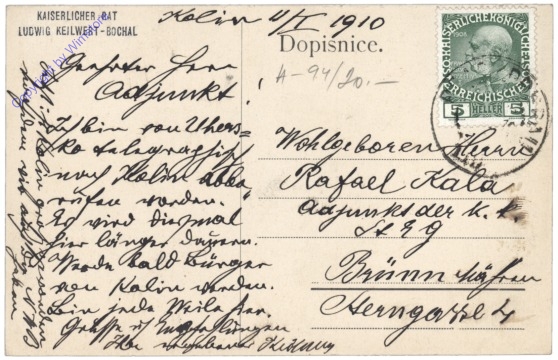 KAISERLICHER RAT
LUDWIG KEILWERT-BOCHAL
Kolin 4/I 1910
Dopisnice.
A-94/20.-
Geehrter Herr
Adjunkt!
Ich bin von Uhers-
ko telegraphisch
nach Kolin abbe
rufen worden.
Es wird diesmal
hier länger dauern.
Werde bald Bürger
von Kolin werden.
Bin jede Weile hier.
Grüsse u Empfehlungen
Ihr ergebener
Wohlgeboren Herrn
Rafael Kala
Adjunkt der k. k.
St E G
Brünn Mähren
Herngasse 4
KAISERLICHE KÖNIGLICHE
ÖSTERREICHISCHE
1908
5 HELLER 5
Copyright by